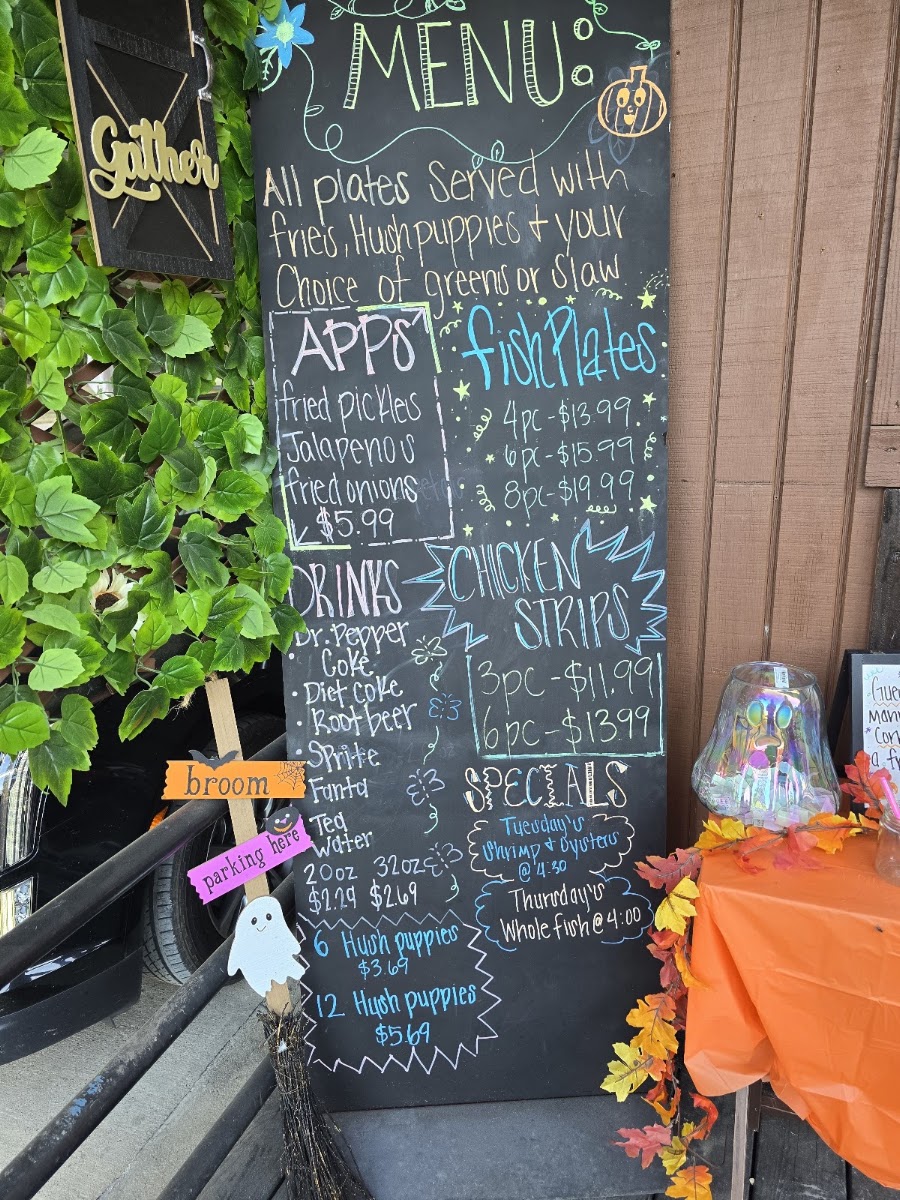 Gather
MENU:
All plates Served with
fries, Hushpuppies + your
Choice of greens or Slaw
APPS
fried pickles
Jalapeno's
fried onions
$5.99
fish Plates
4pc-$13.99
6pc-$15.99
8pc-$19.99
DRINKS
Dr. Pepper
Coke
Diet coke
Root beer
Sprite
Fanta
Tea
Water
20oz 32oz
$2.29 $2.69
CHICKEN
STRIPS
3pc-$11.99
6pc-$13.99
SPECIALS
Tuesday's
Shrimp & Oysters
@ 4:30
Thursday's
Whole fish @ 4:00
6 Hush puppies
$3.69
12 Hush puppies
$5.69
broom
parking here